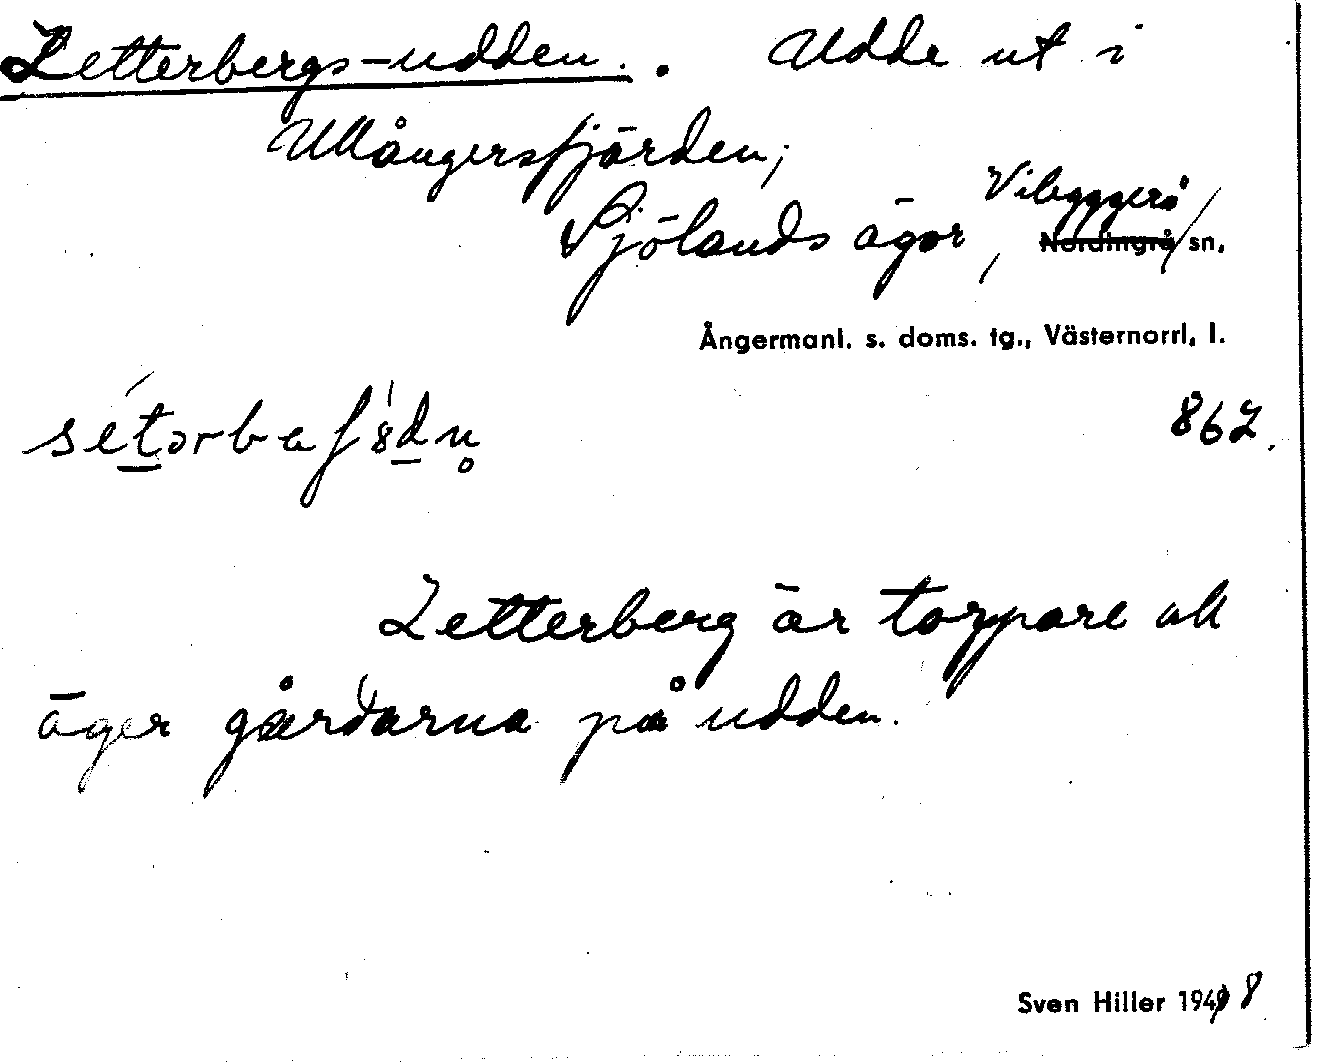 Zetterbergs-udden. Udde ut i
Ullångersfjärden;
Sjölands ägor, Vibyggerå
Nordingrå sn.
Ångermanl. s. doms. tg., Västernorrl. l.
862.
Zetterberg är torpare och
äger gårdarna på udden.
Sven Hiller 1948